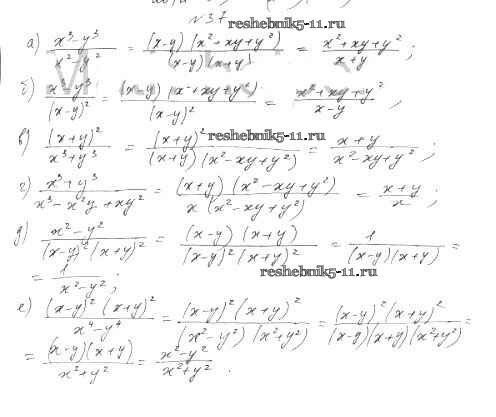 №37 reshebnik5-11.ru
а) (x³-y³)/(x²-y²) = ((x-y)(x²+xy+y²))/((x-y)(x+y)) = (x²+xy+y²)/(x+y);
б) (x³-y³)/(x-y)² = ((x-y)(x²+xy+y²))/(x-y)² = (x²+xy+y²)/(x-y),
reshebnik5-11.ru
в) (x+y)²/(x³+y³) = (x+y)²/((x+y)(x²-xy+y²)) = (x+y)/(x²-xy+y²);
г) (x³+y³)/(x³-x²y+xy²) = ((x+y)(x²-xy+y²))/(x(x²-xy+y²)) = (x+y)/x;
д) (x²-y²)/((x-y)²(x+y)²) = ((x-y)(x+y))/((x-y)²(x+y)²) = 1/((x-y)(x+y)) =
= 1/(x²-y²); reshebnik5-11.ru
е) ((x-y)²(x+y)²)/(x⁴-y⁴) = ((x-y)²(x+y)²)/((x²-y²)(x²+y²)) = ((x-y)²(x+y)²)/((x-y)(x+y)(x²+y²)) =
= ((x-y)(x+y))/(x²+y²) = (x²-y²)/(x²+y²).